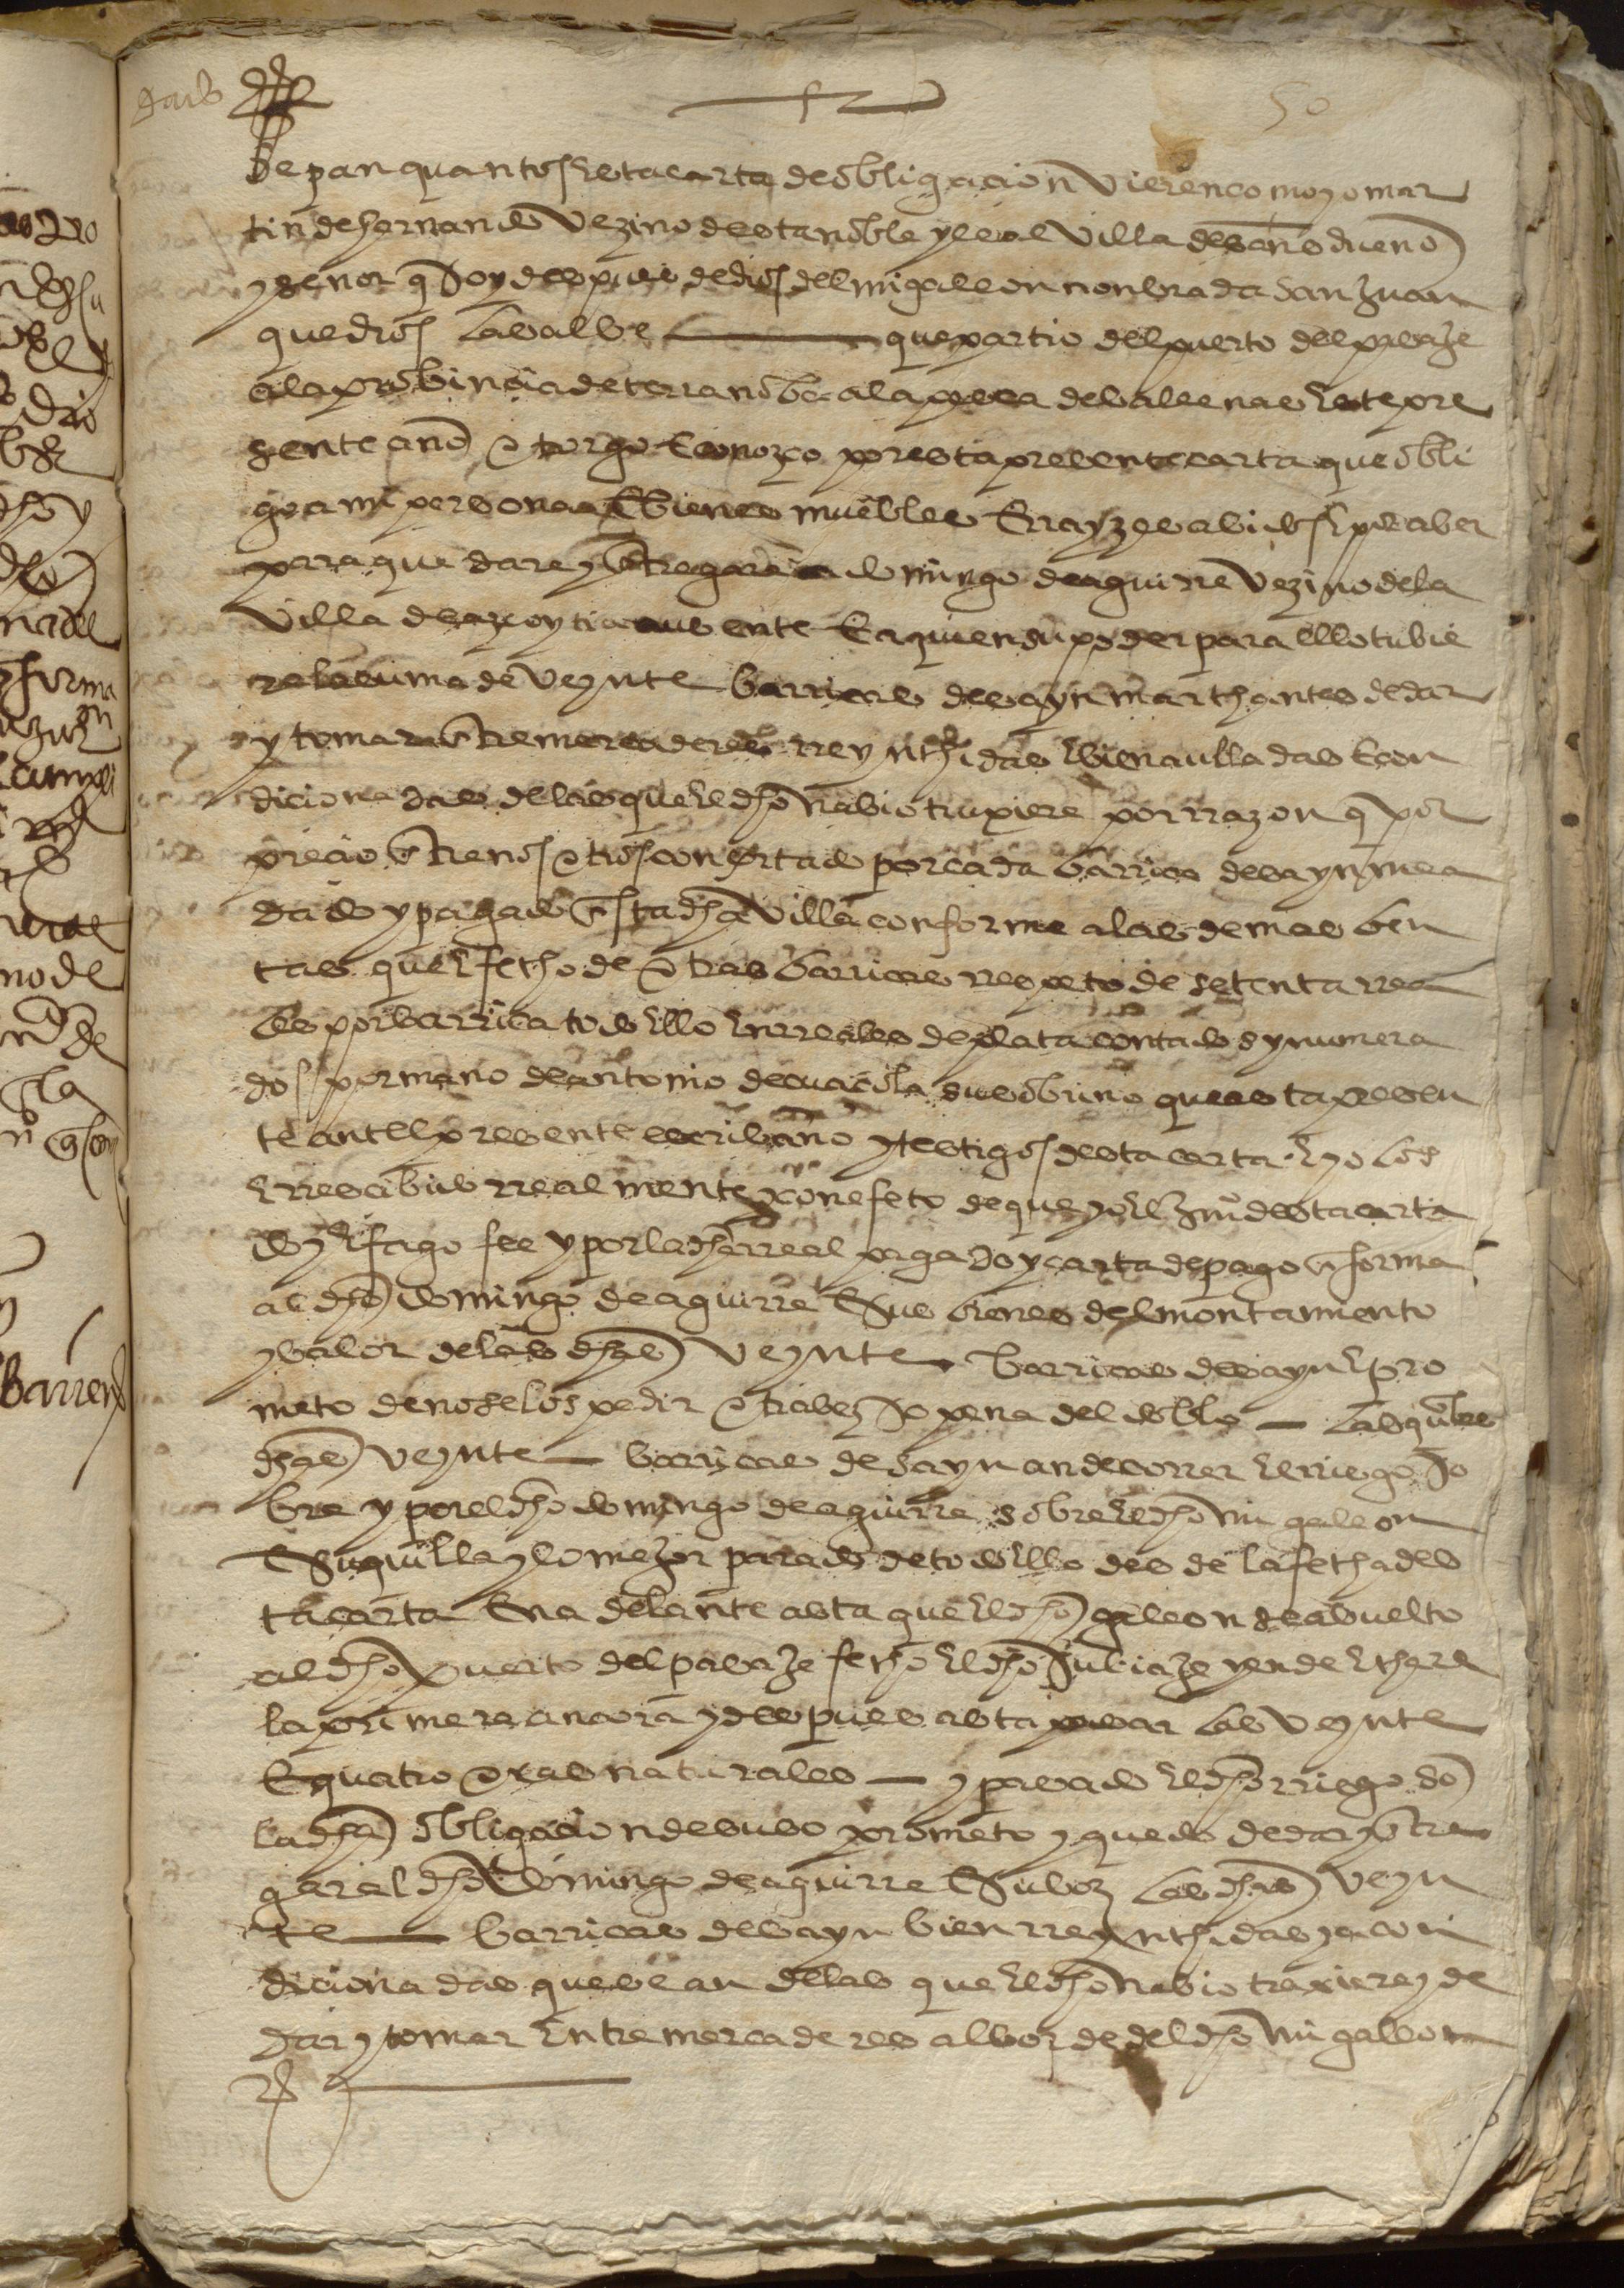 50
Sepan quantos esta carta de obligacion vieren como yo mar
tin de hernando vezino desta noble y leal villa de
y señor q soy despues de dios del mi galeon nonbrada san Juan
que dios la salve que partio del puerto del pasaje
a la probincia de terranoba a la pesca de vallenas este pre
sente año otorgo E conozco por esta presente carta que obli
go a mi persona E bienes muebles E rrayzes abidos e por aber
para que dare y entregare a domingo de aguirre vezino de la
villa de azcoytia ausente E a quien su poder para ello tubie
re la suma de veynte barricas de sayn marchantes de dar
y tomar entre mercaderes rreynchidas e bien aulladas E con
dicionadas de las que el dho nabio truxiere por rrazon q por
precio entre nos otros concertado por cada barrica de sayn me a
dado y pagado en esta dha villa conforme a las demas ben
tas que e fecho de otras barricas rrespeto de setenta rrea
les por barrica todo ello en rreales de plata contados y numera
dos por mano de antonio de su sobrino que esta presen
te ante el presente escribano y testigos desta carta e yo los
e rrescibido rrealmente y con efeto de que yo el escno desta carta
doy e fago fee y por la dha rreal paga doy carta de pago en forma
al dho domingo de aguirre E sus bienes del montamiento
y balor de las dhas veynte barricas de sayn e pro
meto de no se los pedir otra bez so pena del doblo las quales
dhas veynte barricas de sayn an de correr el riesgo so
bre y por el dho domingo de aguirre sobre el dho mi galeon
E su quilla y lo mejor parado de todo ello desde la fecha des
ta carta En adelante asta que el dho galeon sea buelto
al dho puerto del pasaje fecho el dho su biaje y ende echare
la primera ancora y despues asta pasar las veynte
E quatro oras naturales y pasado el dho rriesgo so
la dha obligacion de suso prometo y quedo de dar y entre
gar al dho domingo de aguirre E su boz las dhas veyn
te barricas de sayn bien rreynchidas y acon
dicionadas que sean dellas que el dho nabio traxiere y de
dar y tomar entre mercaderes al borde del dho mi galeon